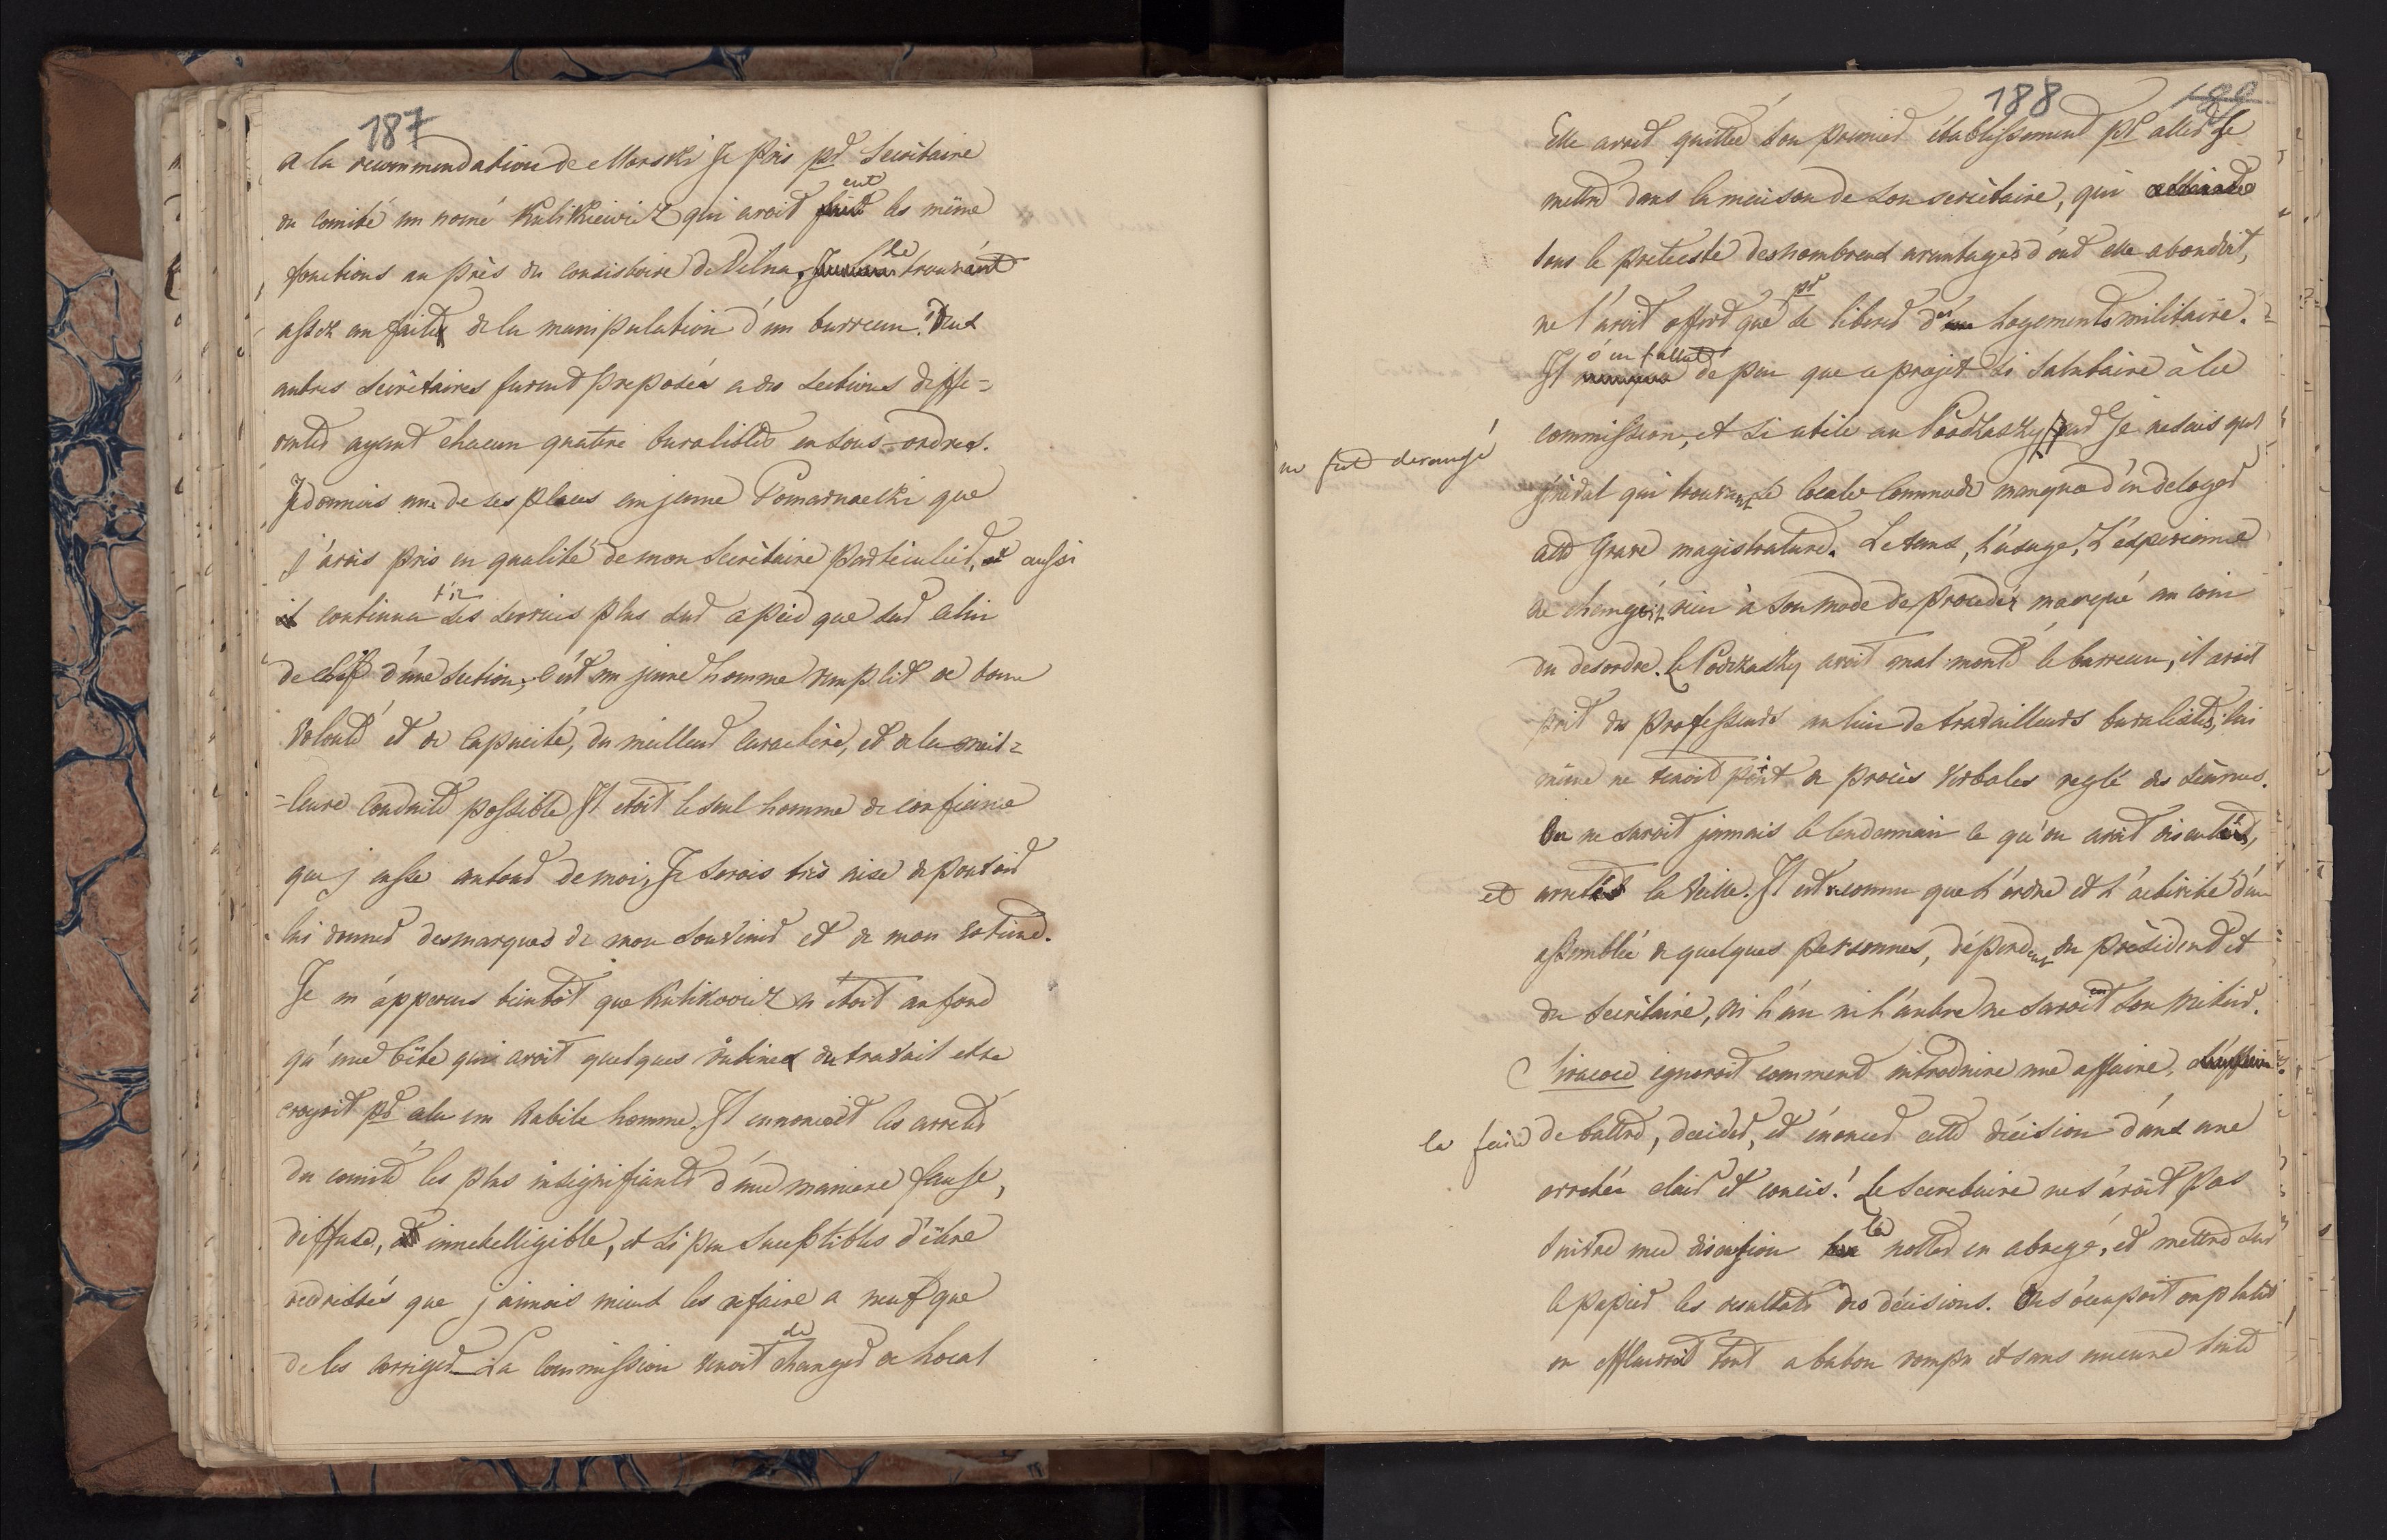 187
a la recommendation de Morski Je pris pr Secrétaire
du Comité un nomé Kulikiewicz qui avoit eut les même
fonctions au près du Consistoire de Vilna, le trouvant
assez au faite de la manipulation d'un burreau. Deux
autres Secrétaires furent preposés a des Sections diffe=
rentes ayant chacun quatre buralistes en sous-ordres.
Je donnais une de ses places au jeune Pomarnacki que
j'avois pris en qualité de mon Secrètaire particulier, et aussi
il continua ses services plus sur ce pied que sur celui
de chef d'une Section, c'ét un jeune homme remplit de bonne
volonté et de capacité, du meilleur caractère, et de la meil=
=leure conduite possible Il etoit le seul homme de confience
que j'eusse autour de moi, Je serois très aise de pouvoir
lui donner des marques de mon souvenir et de mon estime.
Je m'apperçus bientôt que Kulikowicz n'étoit au fond
qu'une bête qui avoit quelques rutines du travail et se
croyoit pr cela un habile homme. Il ennonçoit les arretés
du comité les plus insignifiants d'une maniere fausse,
diffuse, innetelligible, et si peu suceptibles d'être
redressés que j'aimois mieux les refaire a neuf que
de les corriger_ La Commission venoit de changer de local
188 189
Elle avoit quitté son premier établissement pr aller se
mettre dans la maison de son secrètaire, qui
sous le preteste des nombreux avantages d'ont elle abondoit,
ne l'avoit offert que pr se liberer d'un logements militaire.=
Il s'en fallut de peu que ce projet si salutaire à la
commission, et si utile au Podkasky ne fut derangé par Je ne sais quel
géneral qui trouvant le locale commode manqua d'en deloger
cette grave magistrature. Le tems, l'usage, l'éxperience
ne changeoit rien à son mode de proceder marqué au coin
du desordre. Le Podkasky avoit mal monté le burreau, il avoit
prit des professeurs au lieu de travailleurs buralistes, lui
même ne tenoit point de procès verbales reglé des séances.
On ne savoit jamais le lendemain ce qu'on avoit discuté,
et arreté la veille. Il est reconnu que l'ordre et l'activité d'une
assemblée de quelques personnes, dépendent du président et
du Secrètaire, ni l'un ni l'autre ne savoient son métier.
ignoroit comment introduire une affaire,
la faire debattre, decider, et énoncer cette décision dans une
arretée clair et concis! Le Secretaire ne savoit pas
suivre une discussion la notter en abregé, et mettre sur
le papier les resultats des décisions. On s'occupoit ou plutot
on effleuroit tout a baton rompu et sans aucune suite